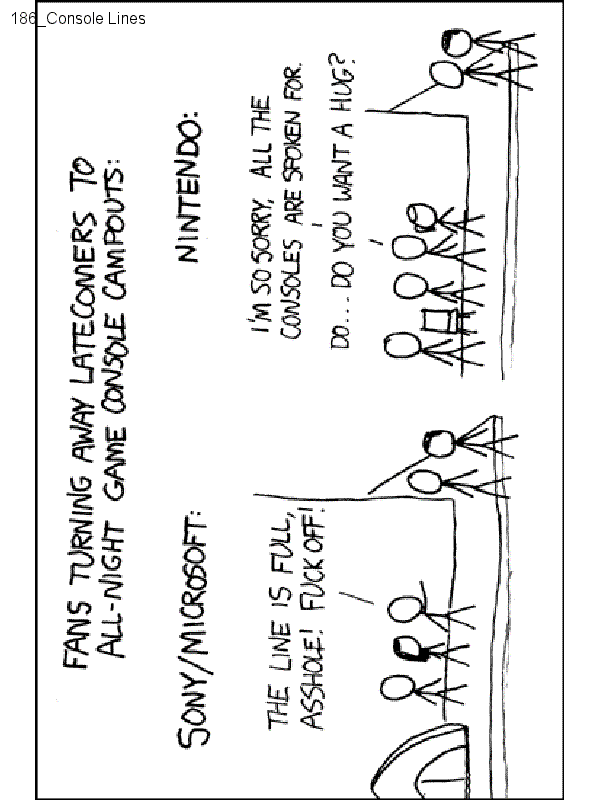 186_Console Lines
FANS TURNING AWAY LATECOMERS TO
ALL-NIGHT GAME CONSOLE CAMPOUTS:
SONY/MICROSOFT:
THE LINE IS FULL,
ASSHOLE! FUCK OFF!
NINTENDO:
I'M SO SORRY, ALL THE
CONSOLES ARE SPOKEN FOR.
DO... DO YOU WANT A HUG?